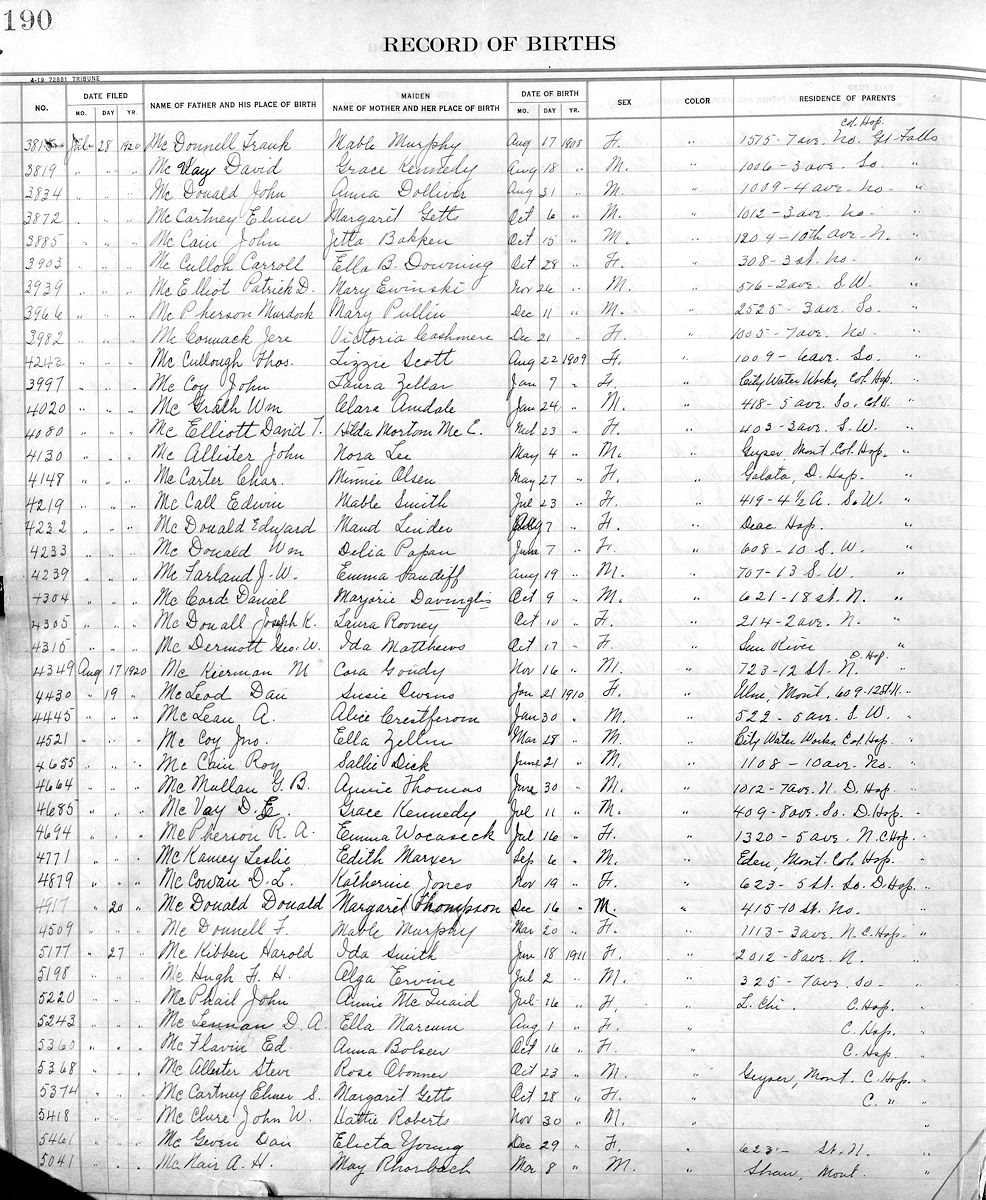 190
RECORD OF BIRTHS
4-19 72881 TRIBUNE
NO. DATE FILED MO. DAY YR. NAME OF FATHER AND HIS PLACE OF BIRTH MAIDEN NAME OF MOTHER AND HER PLACE OF BIRTH DATE OF BIRTH MO. DAY YR. SEX COLOR RESIDENCE OF PARENTS
Col. Hop.
Jul 28 1920 Mc Donnell Frank Mable Murphy Aug 17 1908 F. " 1575-7 ave. No. Gt Falls
3819 " " " Mc Vay David Grace Kennedy Aug 18 " M. " 1006-3 ave. So. "
3834 " " " Mc Donald John Anna Dolliver Aug 31 " M. " 1009-4 ave. No. "
3872 " " " Mc Cartney Elmer Margaret Getts Oct 6 " M. " 1012-3 ave. No. "
3885 " " " Mc Cain John Jetta Bakken Oct 15 " M. " 1204-10th Ave. N. "
3903 " " " Mc Culloh Carroll Ella B. Downing Oct 28 " F. " 308-3 St. No. "
3939 " " " Mc Elliot Patrick D. Mary Ewinski Nov 26 " M. " 516-2 ave. S.W. "
3966 " " " Mc Pherson Murdock Mary Pullin Dec 11 " M. " 2525-3 ave. So. "
3982 " " " Mc Cormack Jere Victoria Cashmere Dec 21 " F. " 1005-7 ave. No. "
4243 " " " Mc Cullough Thos. Lizzie Scott Aug 22 1909 F. " 1009-6 ave. So. "
3997 " " " Mc Coy John Laura Zellar Jan 7 " F. " City Water Works, Col. Hop. "
4020 " " " Mc Grath Wm Clara Amdale Jan 24 " M. " 418-5 ave. So. Col H. "
4080 " " " Mc Elliott David T. Hilda Mortom Mc E. 23 " F. " 403-3 ave. S.W. "
4130 " " " Mc Allister John Nora Lee May 4 " M. " Geyser Mont. Col. Hop. "
4148 " " " Mc Carter Chas. Minnie Olsen May 27 " F. " Galata, D. Hop. "
4219 " " " Mc Call Edwin Mable Smith Jul 23 " F. " 419-4½ A. S.W. "
4232 " " " Mc Donald Edward Maud Lender Aug 7 " F. " Deac. Hop. "
4233 " " " Mc Donald Wm Delia Papan June 7 " F. " 608-10 S.W. "
4239 " " " Mc Farland J. W. Emma Aug 19 " M. " 707-13 S.W. "
4304 " " " Mc Cord Daniel Marjorie Oct 9 " M. " 621-18 St. N. "
4305 " " " Mc Douall Joseph K. Laura Rooney Oct 10 " F. " 214-2 ave. N. "
4315 " " " Mc Dermott Geo. W. Ida Matthews Oct 17 " F. " Sun River "
D. Hop.
4349 Aug 17 1920 Mc Kierman M Cora Goudy Nov 16 " M. " 723-12 St. N.
4430 " 19 " Mc Leod Dan Susie Owens Jan 21 1910 F. " Ulm, Mont, 609-12 St. N. "
4445 " " " Mc Lean A. Alice Crestferom Jan 30 " M. " 522-5 ave. S.W. "
4521 " " " Mc Coy Jno. Ella Zellm Mar 28 " M. " City Water Works, Col. Hop. "
4655 " " " Mc Cain Roy Sallie Dick June 21 " M. " 1108-10 ave. No. "
4664 " " " Mc Mullan G. B. Annie Thomas June 30 " M. " 1012-7 ave. N. D. Hop. "
4685 " " " Mc Vay D. E Grace Kennedy Jul 11 " M. " 409-8 ave. So. D. Hop. "
4694 " " " Mc Pherson R. A. Emma Wocaseck Jul 16 " F. " 1320-5 ave. N. C Hop. "
4771 " " " Mc Kamey Leslie Edith Marver Sep 6 " M. " Eden, Mont. Col. Hop. "
4879 " " " Mc Cowan D. L. Katherine Jones Nov 19 " F. " 623-5 St. So. D Hop. "
4917 " 20 " Mc Donald Donald Margaret Thompson Dec 16 " M. " 415-10 St. No. "
4509 " " " Mc Donnell F. Mable Murphy Mar 20 " F. " 1113-3 ave. N. C Hop. "
5177 " 27 " Mc Kibben Harold Ida Smith Jun 18 1911 F. " 2012-8 ave. N. "
5198 " " " Mc Hugh F. H. Alga Ervine Jul 2 " M. " 325-7 ave. So. "
5220 " " " Mc Phail John Annie McQuaid Jul 16 " F. " L. Chi. C. Hop. "
5243 " " " Mc Lennan D. A. Ella Marcum Aug 1 " F. " C. Hop. "
5360 " " " Mc Flavin Ed. Anna Bolsen Oct 16 " F. " C. Hop "
5368 " " " Mc Allester Steve Rose Abonner Oct 23 " M. " Geyser, Mont. C. Hop. "
5374 " " " Mc Cartney Elmer S. Margaret Getts Oct 28 " F. " C. " "
5418 " " " Mc Clure John W. Hattie Roberts Nov 30 " M. " "
5461 " " " Mc Geven Dan Electa Young Dec 29 " F. " 623- St. N. "
5041 " " " Mc Nair A. H. May Rhorbach Mar 8 " M. " Shaw, Mont "